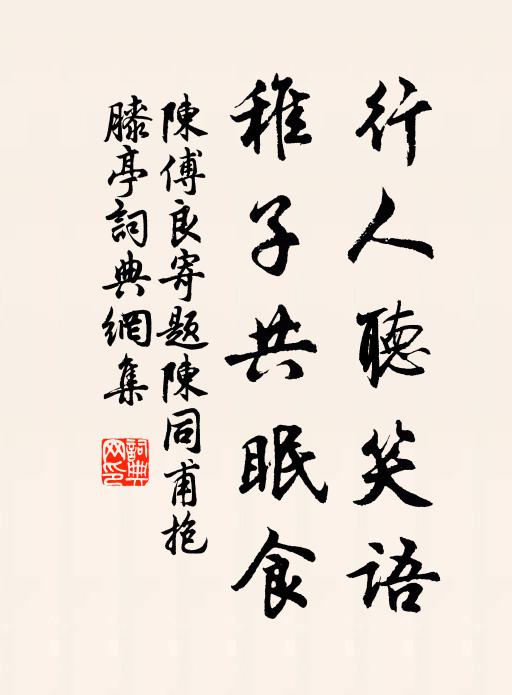 行人聽笑語
稚子共眠食
陳傅良寄題陳同甫抱
膝亭詞典網集
詞典
网印